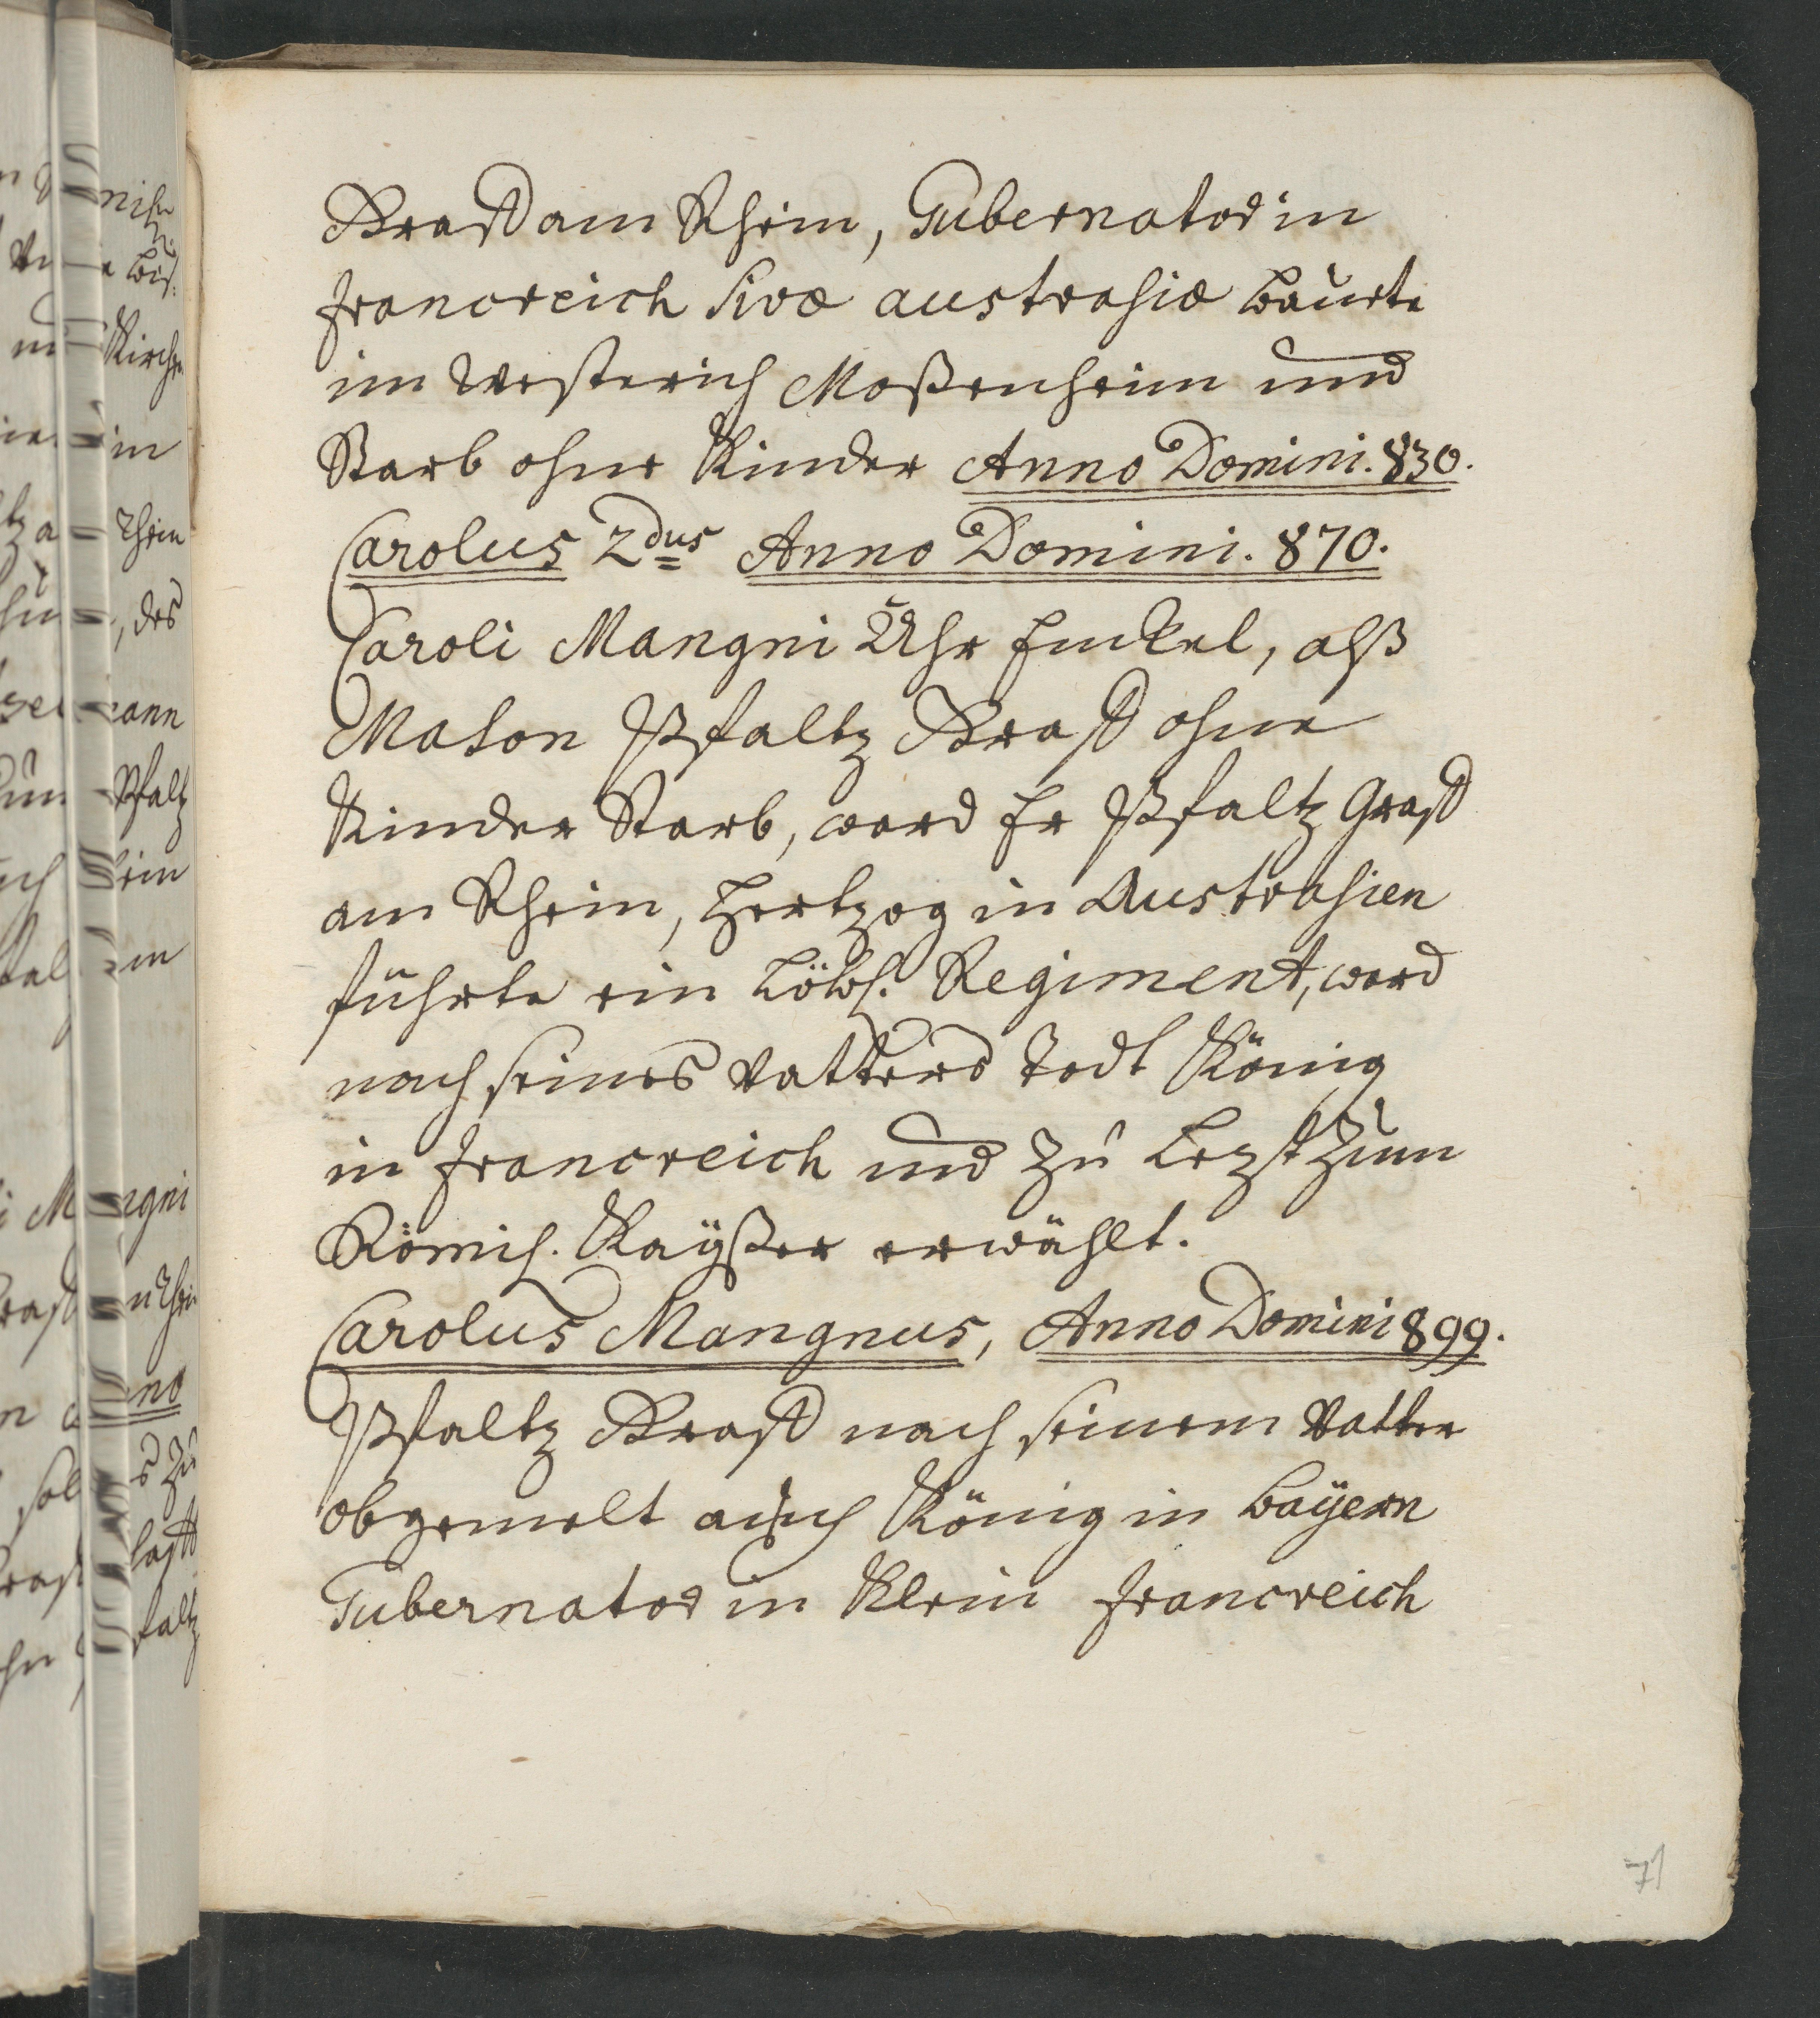 Graff am Rhein, Gubernator in
franckreich Sive austrasiæ baute
im Westerich Moßenheim und
Starb ohne Kinder Anno Domini. 830.
Carolus 2dus Anno Domini. 870.
Caroli Mangni Uhr Enckel, alß
Mason Pfaltz Graff ohne
Kinder Starb, ward Er Pfaltz Graff
am Rhein, Hertzog in Austrasien
führte ein Löbl. Regiment, ward
nach seines Vatters Todt König
in francreich und zu Lezst zum
Römis. Kaÿßer erwählt.
Carolus Mangnus, Anno Domini 899.
Pfaltz Graff nach seinem Vatter
obgemelt auch König in Baÿern
Gubernator in Klein francreich
71